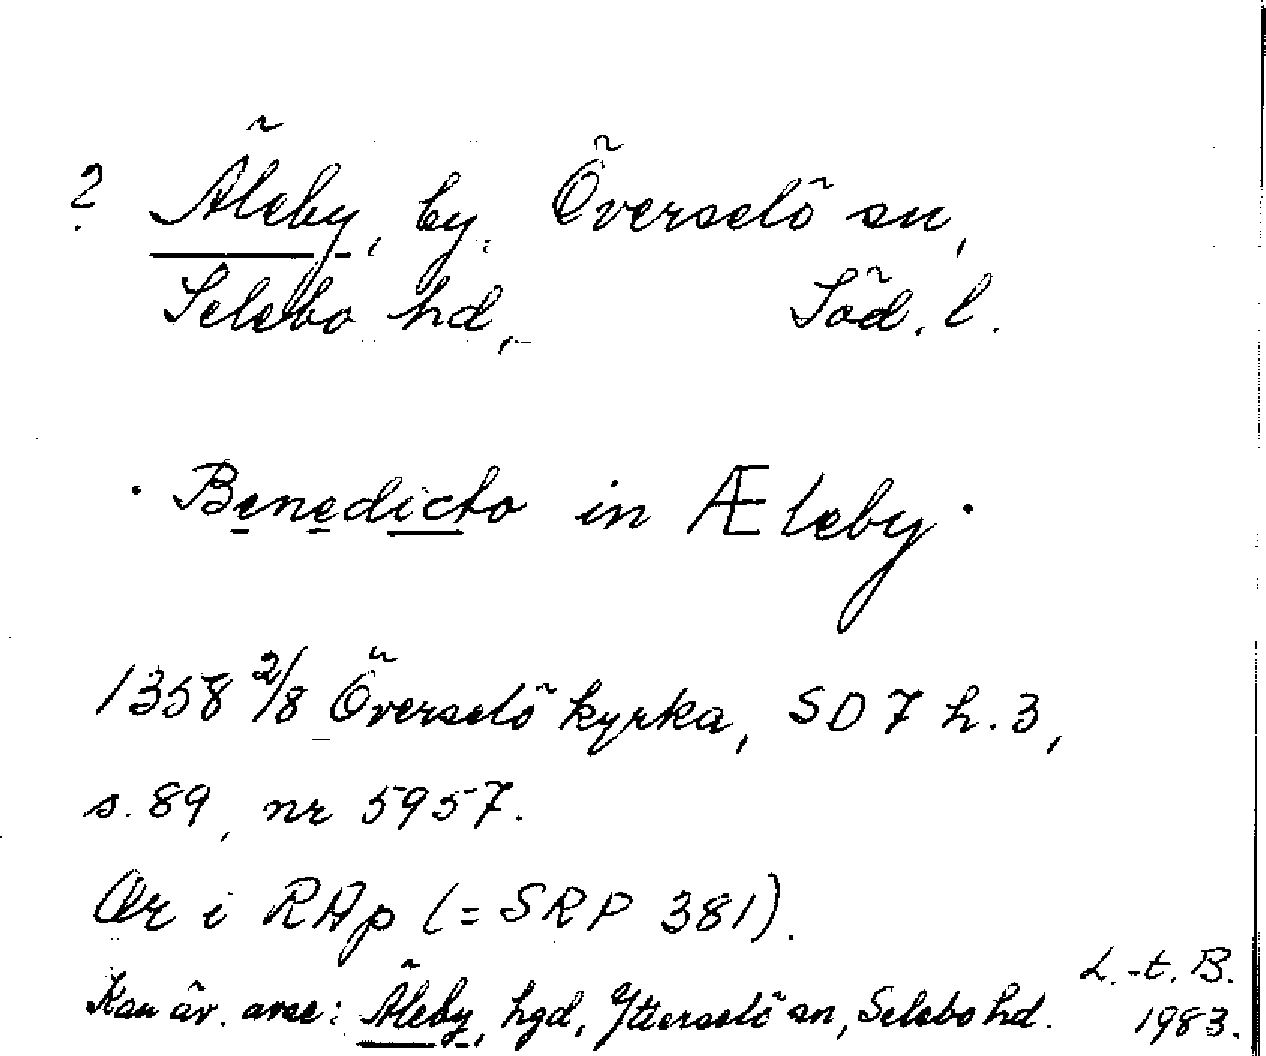 ? Äleby, by, Överselö sn,
Selebo hd, Söd. l.
· Benedicto in Æleby ·
1358 2/8 Överselö kyrka, SD 7 h. 3,
s. 89, nr 5957.
Or i RAp (= SRP 381).
Kan äv. avse: Äleby, hgd, Ytterselö sn, Selebo hd.
L.-t. B.
1983.